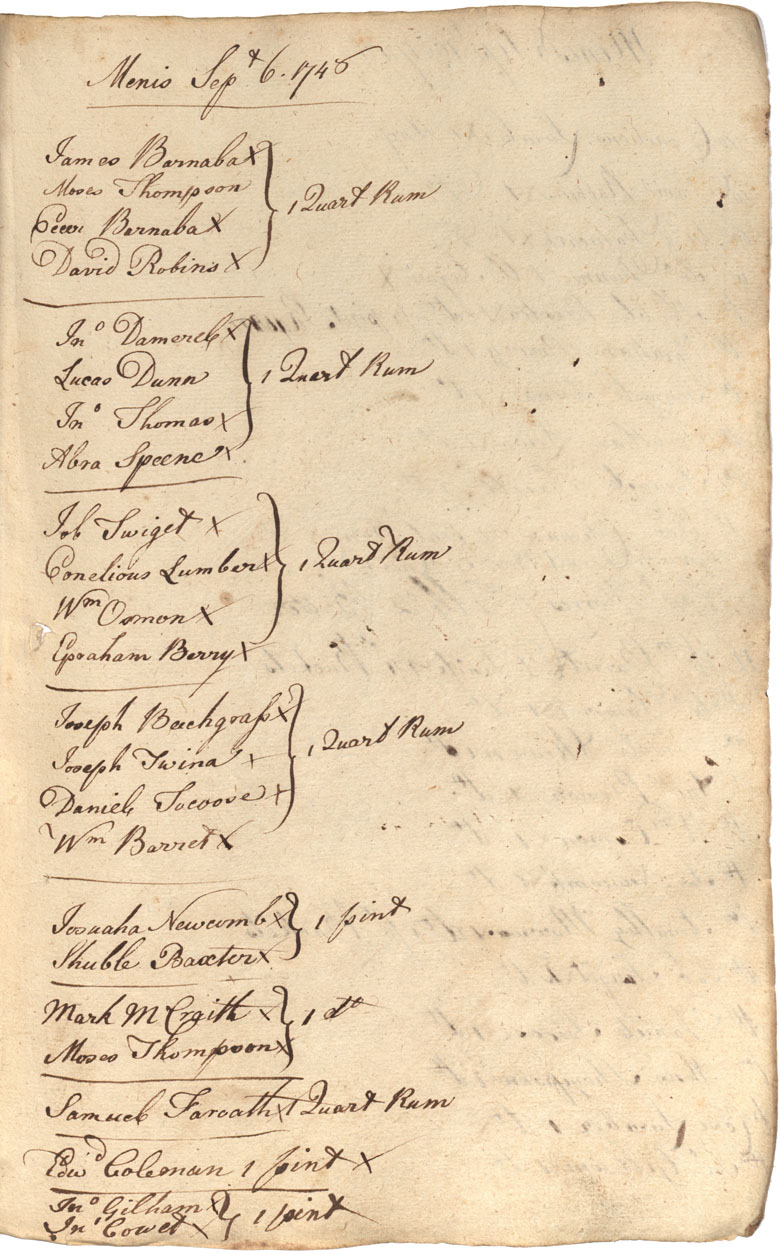 Menis Sept 6. 1746
James Barnaba X
Moses Thompson
Peeter Barnaba X } 1 Quart Rum
David Robins X
Jno Damerel X
Lucas Dunn } 1 Quart Rum
Jno Thomas X
Abra Speene X
Job Twiget X
Conelious Lumber X } 1 Quart Rum
Wm Osmon X
Epraham Berry X
Joseph Beachgrass X
Joseph Twina X } 1 Quart Rum
Daniel Socoove X
Wm Barret X
Josuaha Newcomb X } 1 pint
Shuble Baxter X
Mark McCraith X } 1 do
Moses Thompson X
Samuel Faroath X 1 Quart Rum
Edwd Coleman 1 pint X
Jno Gilham X } 1 pint
Jno Cowet X